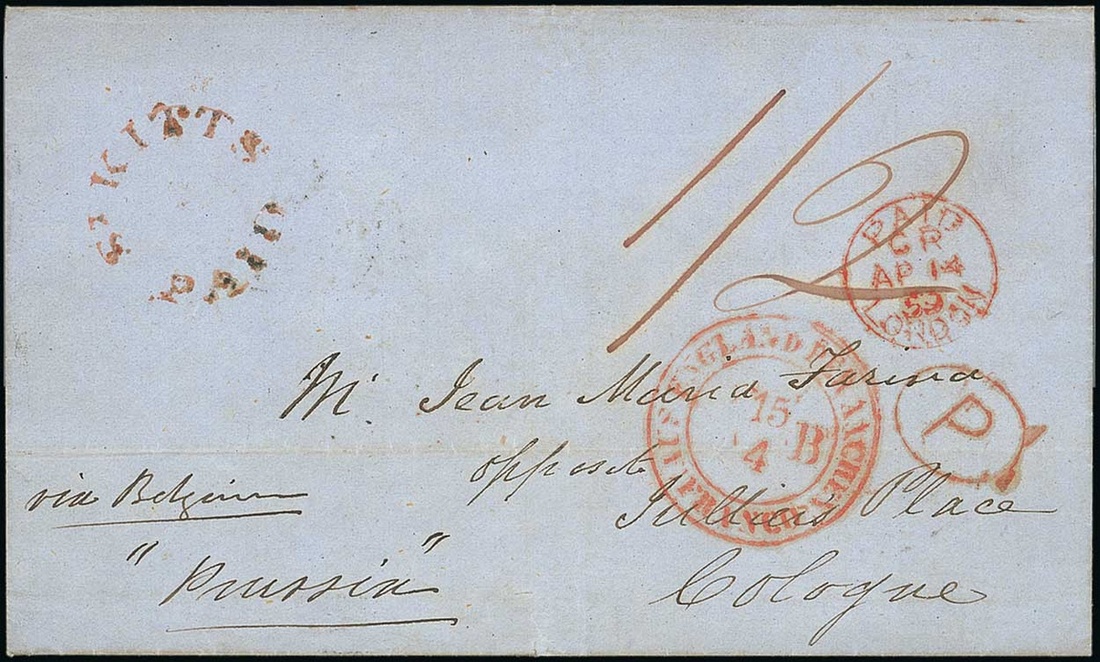 ST KITTS
PAID
1/2
PAID
GR
AP 14
LONDON
15
4 B
FRANCO
P
Mr Jean Maria Farina
opposite
Julliers Place
Cologne
via Belgium
"Prussia"